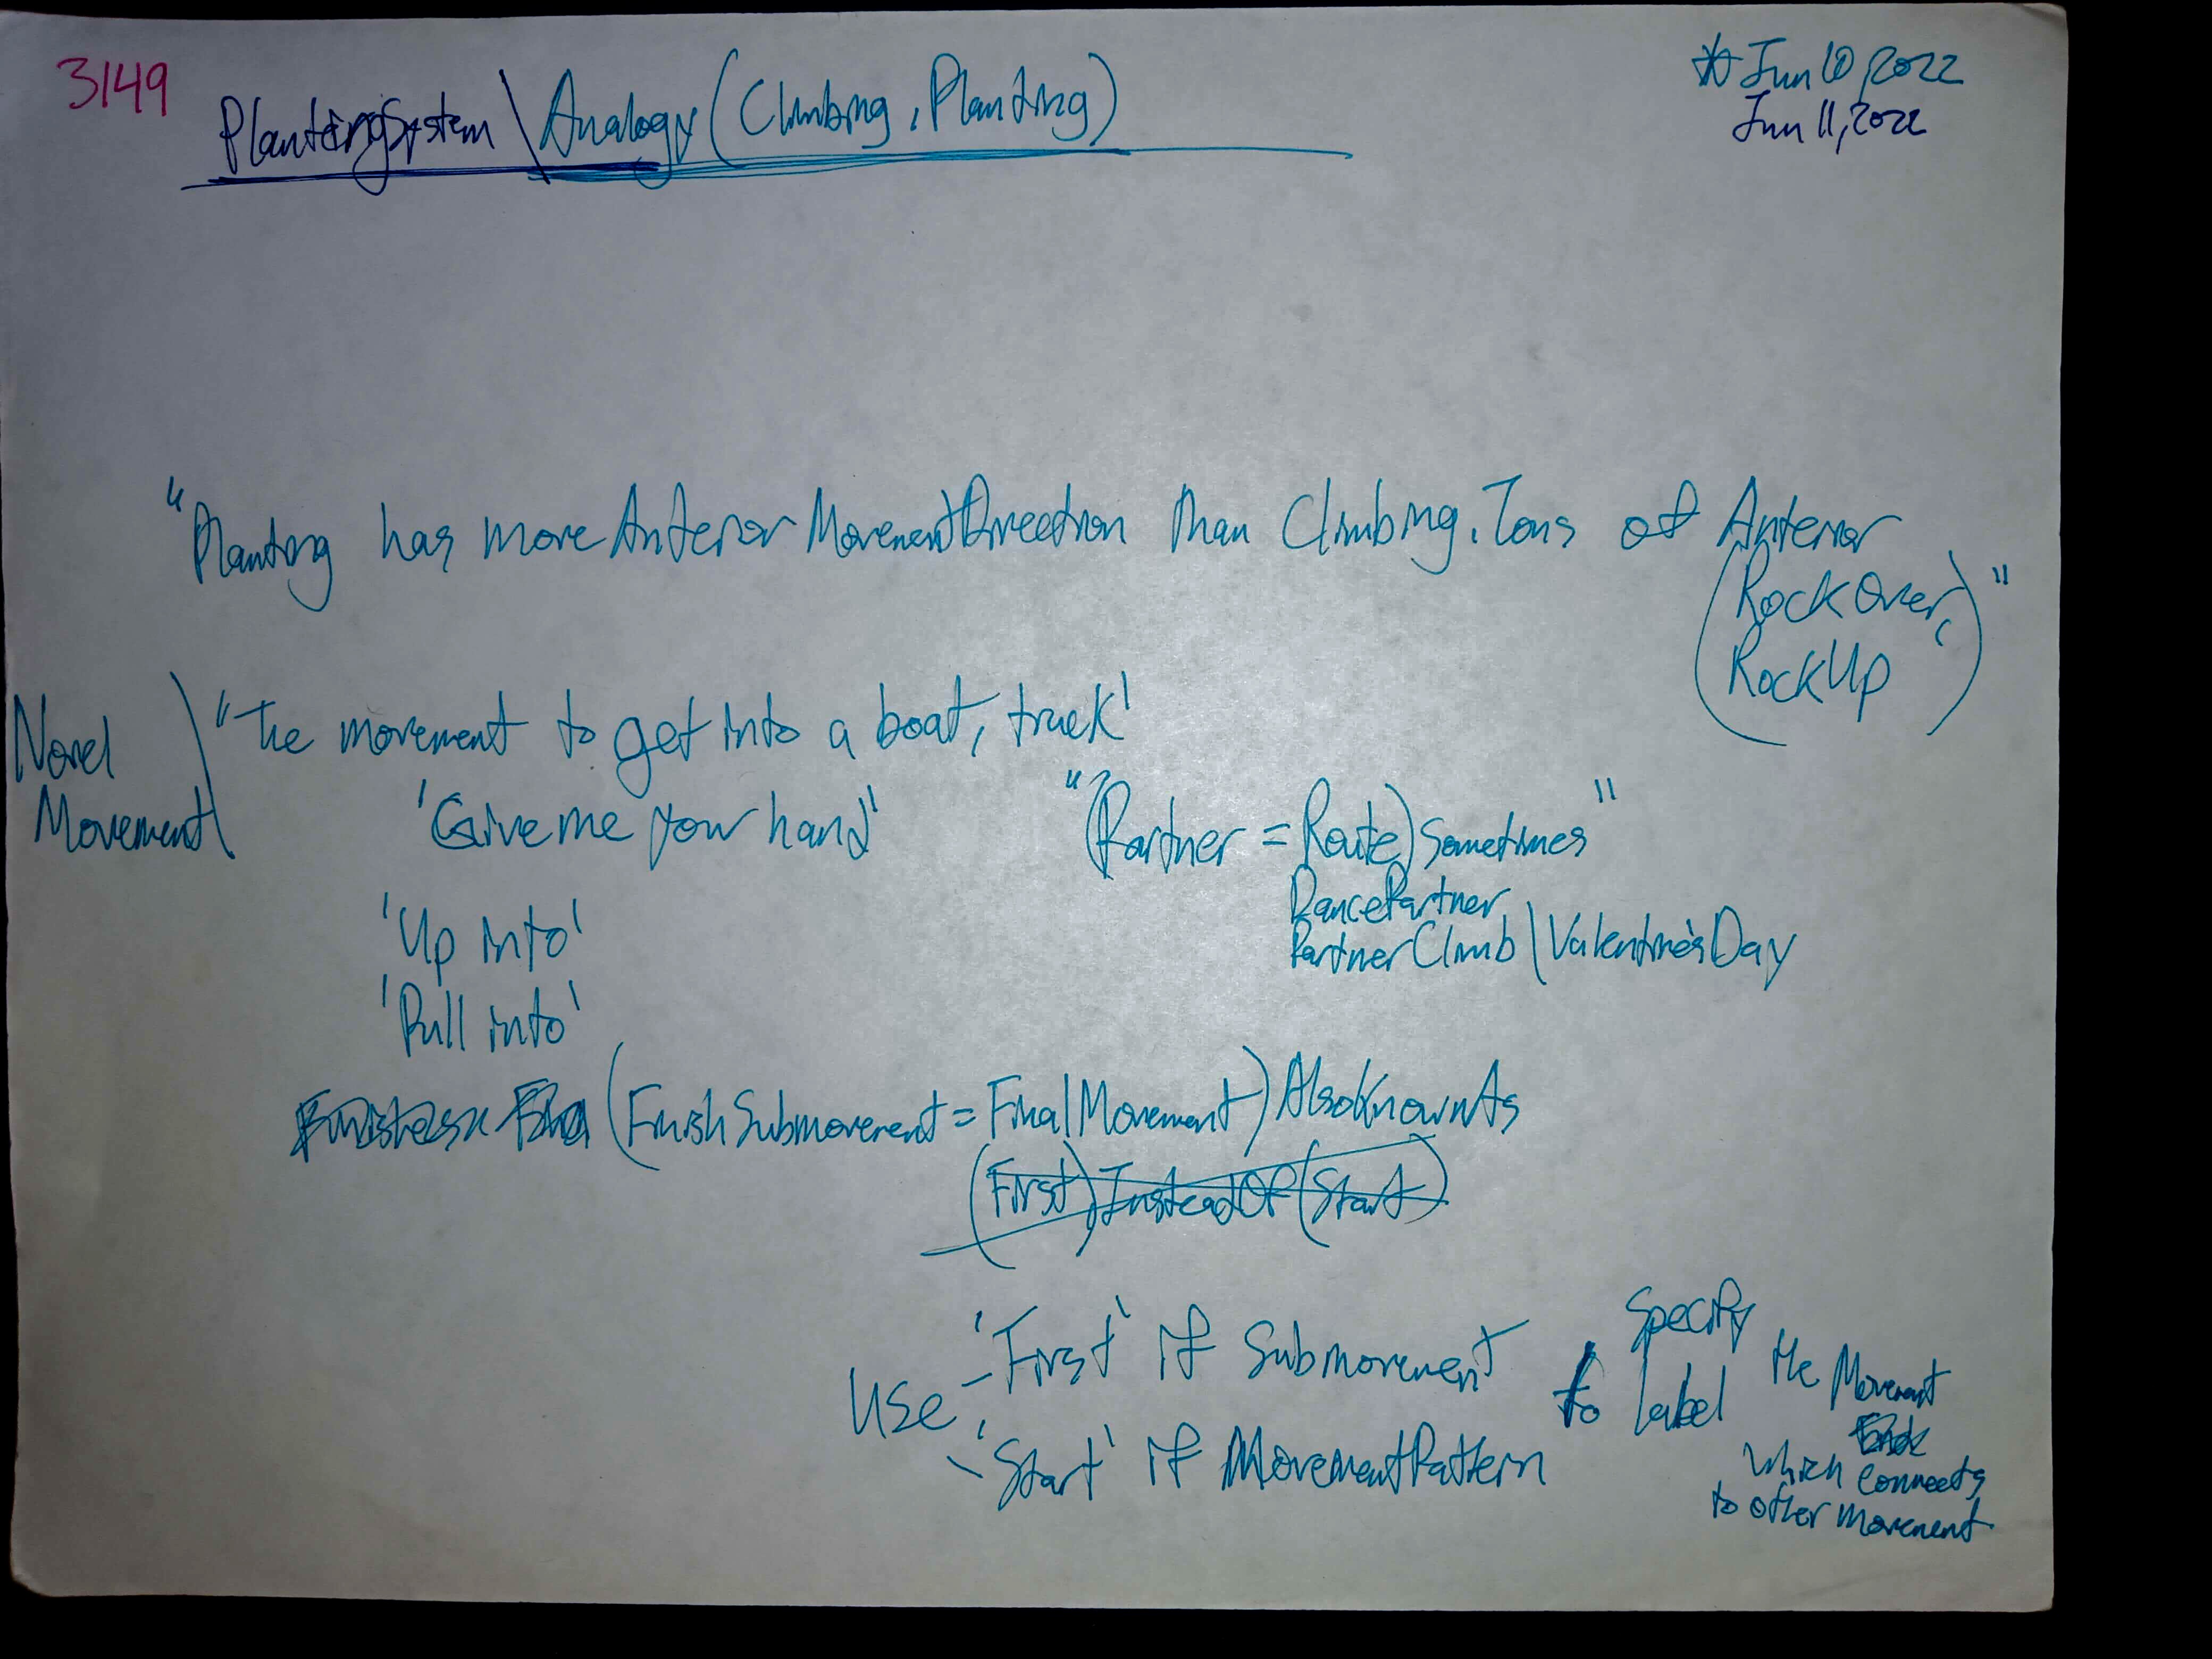 3149
PlantingSystem\Analogy(Climbing, Planting)
* Jun 10, 2022
Jun 11, 2022
"Planting has more Anterior MovementDirection than Climbing. Tons of Anterior
(RockOver,
RockUp)"
Novel
Movement\
"The movement to get into a boat, truck'
'Give me your hand'
"(Partner = Route) Sometimes"
DancePartner
PartnerClimb\Valentine'sDay
'Up into'
'Pull into'
(FinishSubmovement = FinalMovement) AlsoKnownAs
(First) InsteadOf (Start)
Use
- 'First' if Submovement
- 'Start' if MovementPattern
to
Specify
label
the Movement
which connects
to other movement